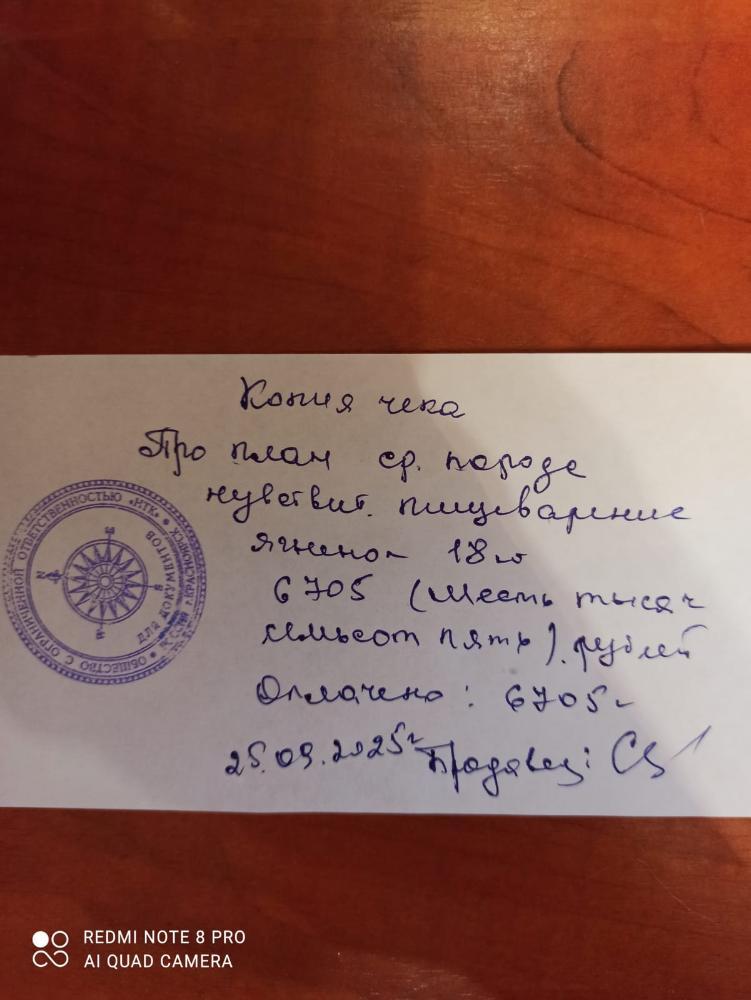 Копия чека
Про план ср. породе
чувствит. пищеварение
ягненок 18 кг
6705 (шесть тысяч
семьсот пять). рублей
Оплачено: 6705-
25.09.2025г Продавец:
ОБЩЕСТВО С ОГРАНИЧЕННОЙ ОТВЕТСТВЕННОСТЬЮ «НТК»
РОССИЯ г.КРАСНОЯРСК
ДЛЯ ДОКУМЕНТОВ
REDMI NOTE 8 PRO
AI QUAD CAMERA